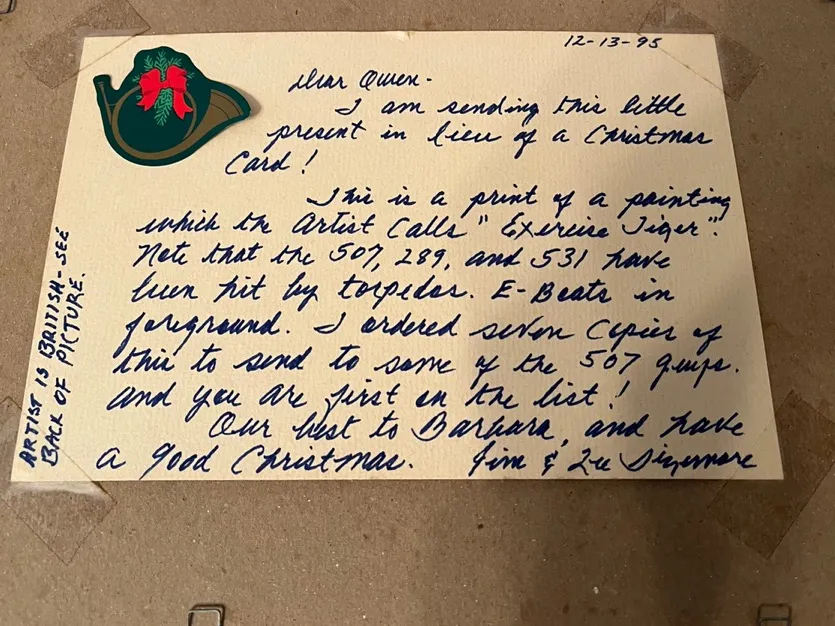 12-13-95
Dear Owen-
I am sending this little
present in lieu of a Christmas
Card!
This is a print of a painting
which the Artist Calls "Exercise Tiger".
Note that the 507, 289, and 531 have
been hit by torpedos. E-Boats in
foreground. I ordered seven Copies of
this to send to some of the 507 guys.
and you are first on the list!
Our best to Barbara, and have
a good Christmas. Jim &
ARTIST IS BRITISH-SEE
BACK OF PICTURE.